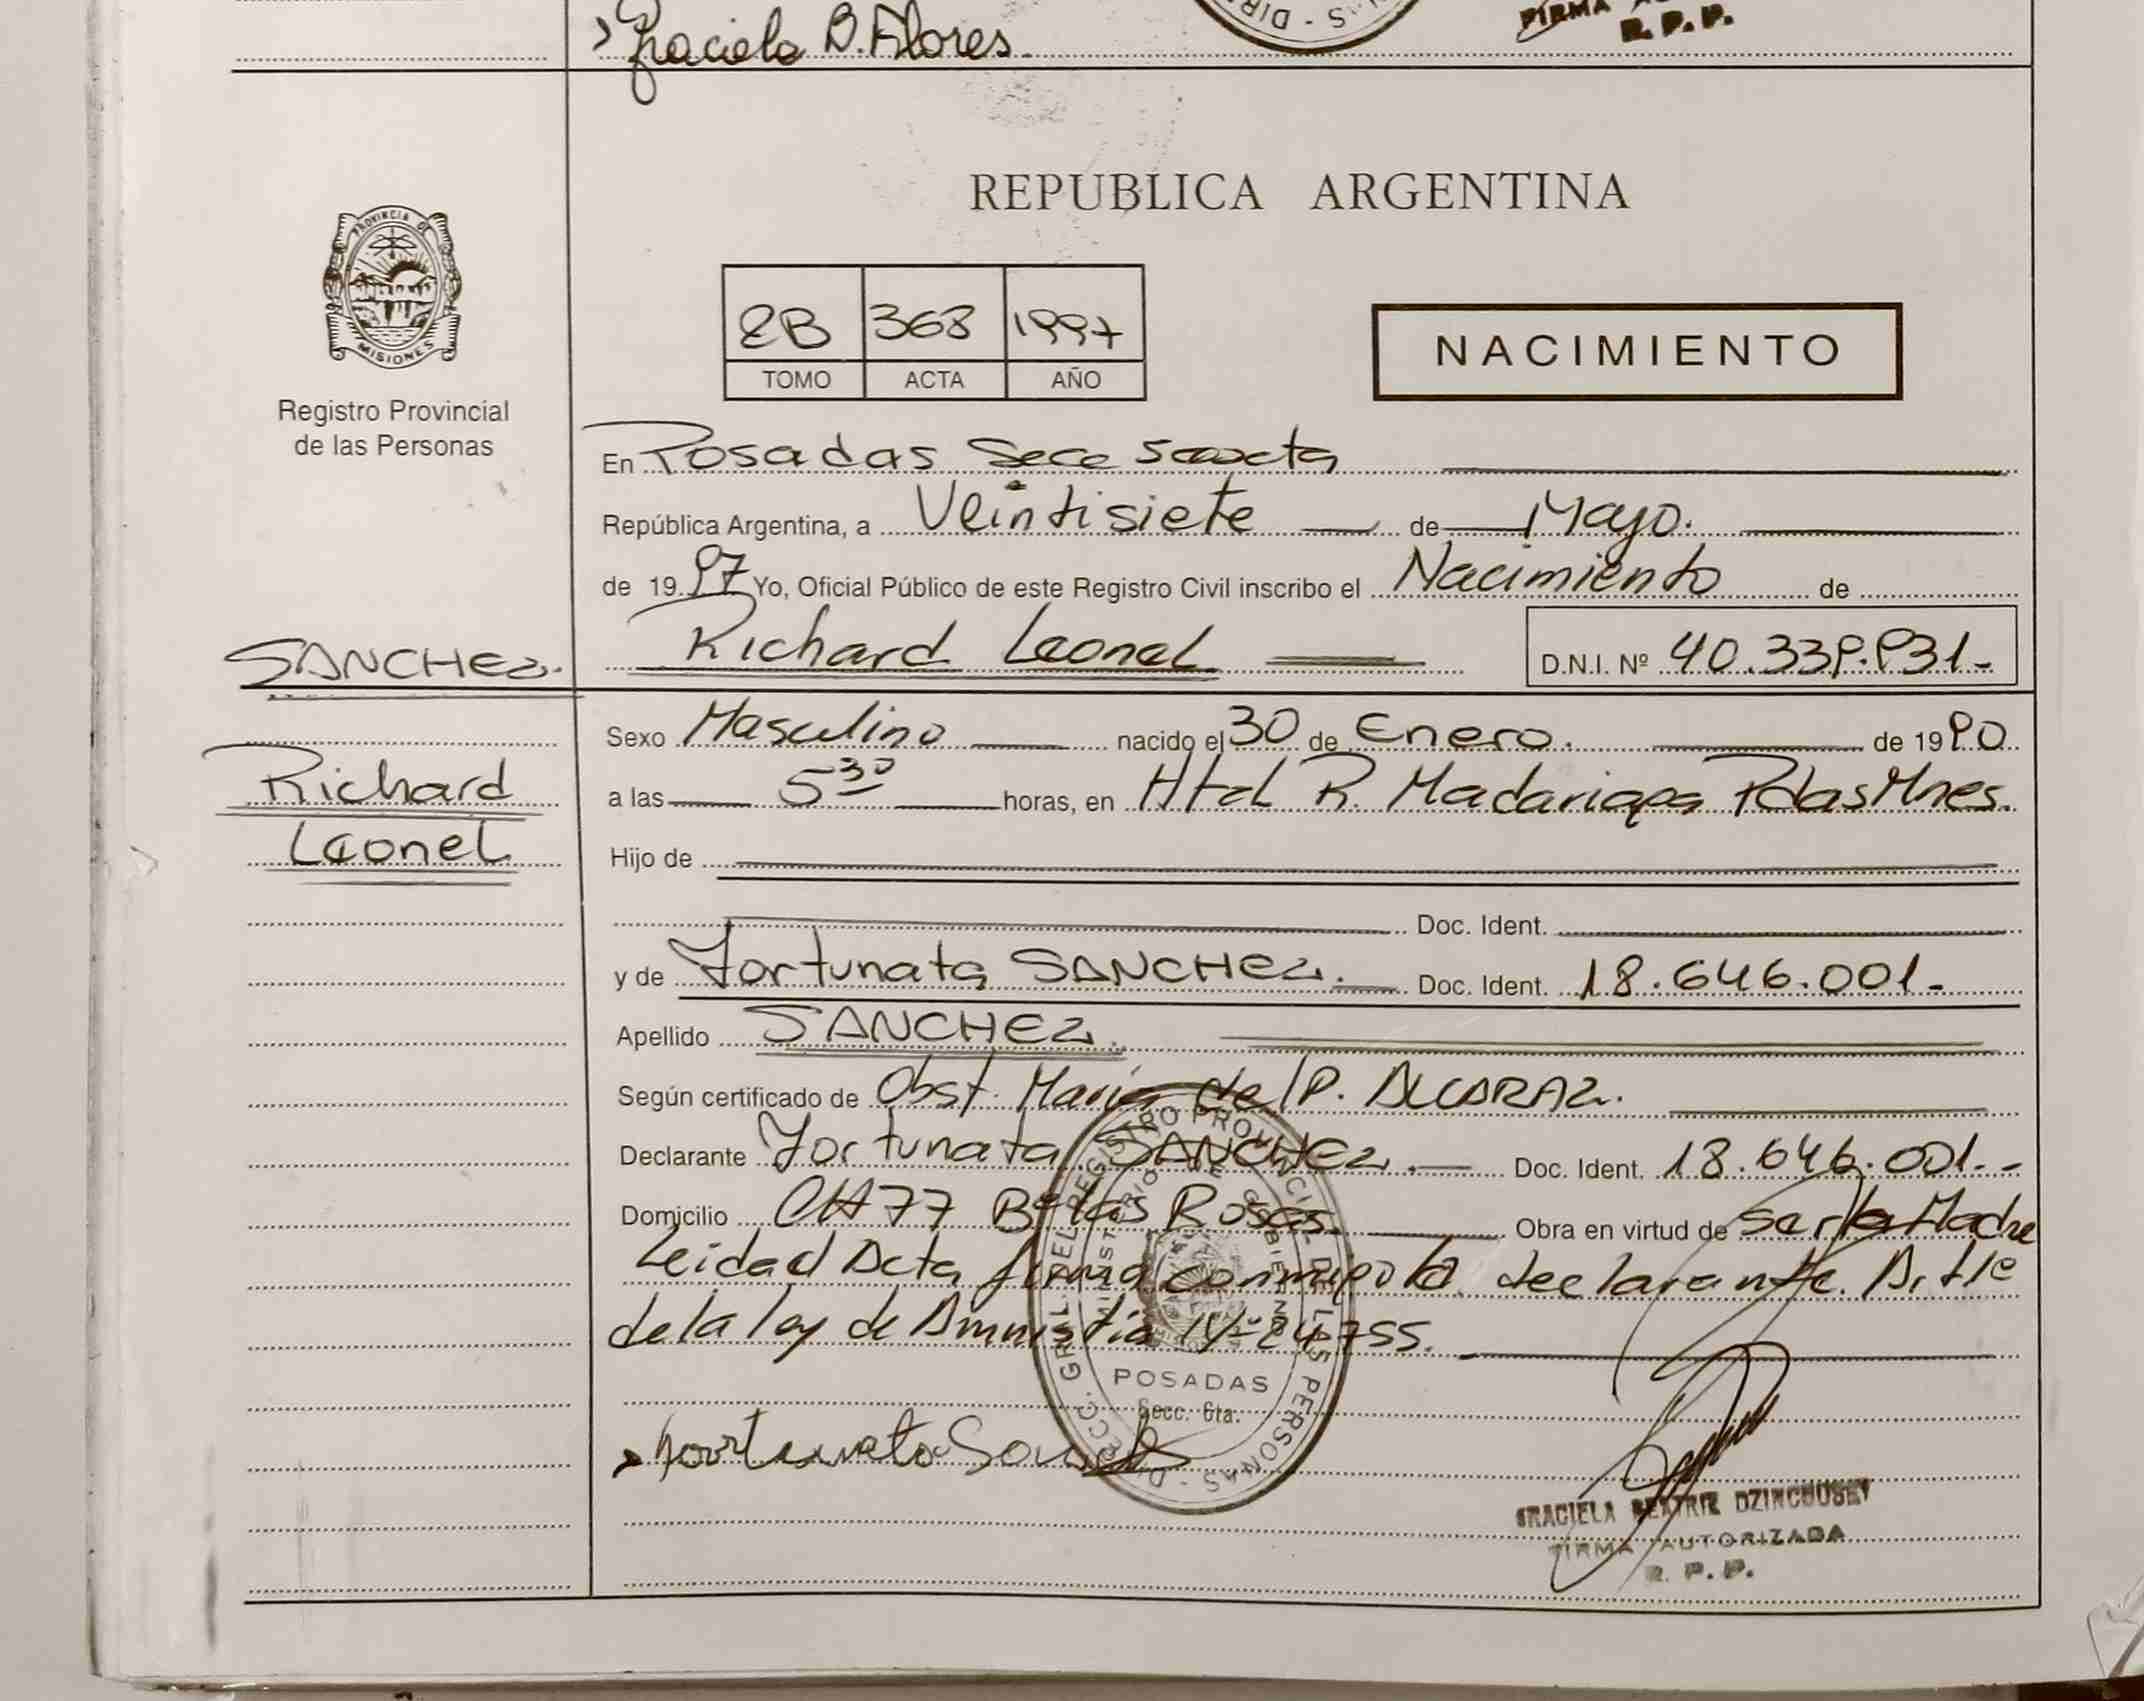 Graciela B. Flores
FIRMA
R. P. P.
REPUBLICA ARGENTINA
PROVINCIA DE MISIONES
Registro Provincial
de las Personas
2B 368 1997
TOMO ACTA AÑO
NACIMIENTO
En Posadas Secc Sexta
República Argentina, a Veintisiete de Mayo.
de 1997 Yo, Oficial Público de este Registro Civil inscribo el Nacimiento de
Richard Leonel D.N.I. Nº 40.339.931.-
SANCHEZ.
Richard
Leonel
Sexo Masculino nacido el 30 de Enero. de 1990
a las 5 30 horas, en Htal R. Madariaga Pdas Mnes.
Hijo de
Doc. Ident.
y de Fortunata SANCHEZ. Doc. Ident. 18.646.001.-
Apellido SANCHEZ.
Según certificado de Obst. Maria del P. ALCARAZ.
Declarante Fortunata SANCHEZ. Doc. Ident. 18.646.001.-
Domicilio CH 77 Bº Las Rosas. Obra en virtud de ser la Madre
Leida el Acta firma conmigo la declarante. Art 1º
de la ley de Amnistia Nº 24755.
Fortunata Sanchez
DIRECC. GRAL. DEL REGISTRO PROVINCIAL DE LAS PERSONAS
MINISTERIO DE GOBIERNO
POSADAS
Secc. 6ta.
GRACIELA BEATRIZ
FIRMA AUTORIZADA
R. P. P.